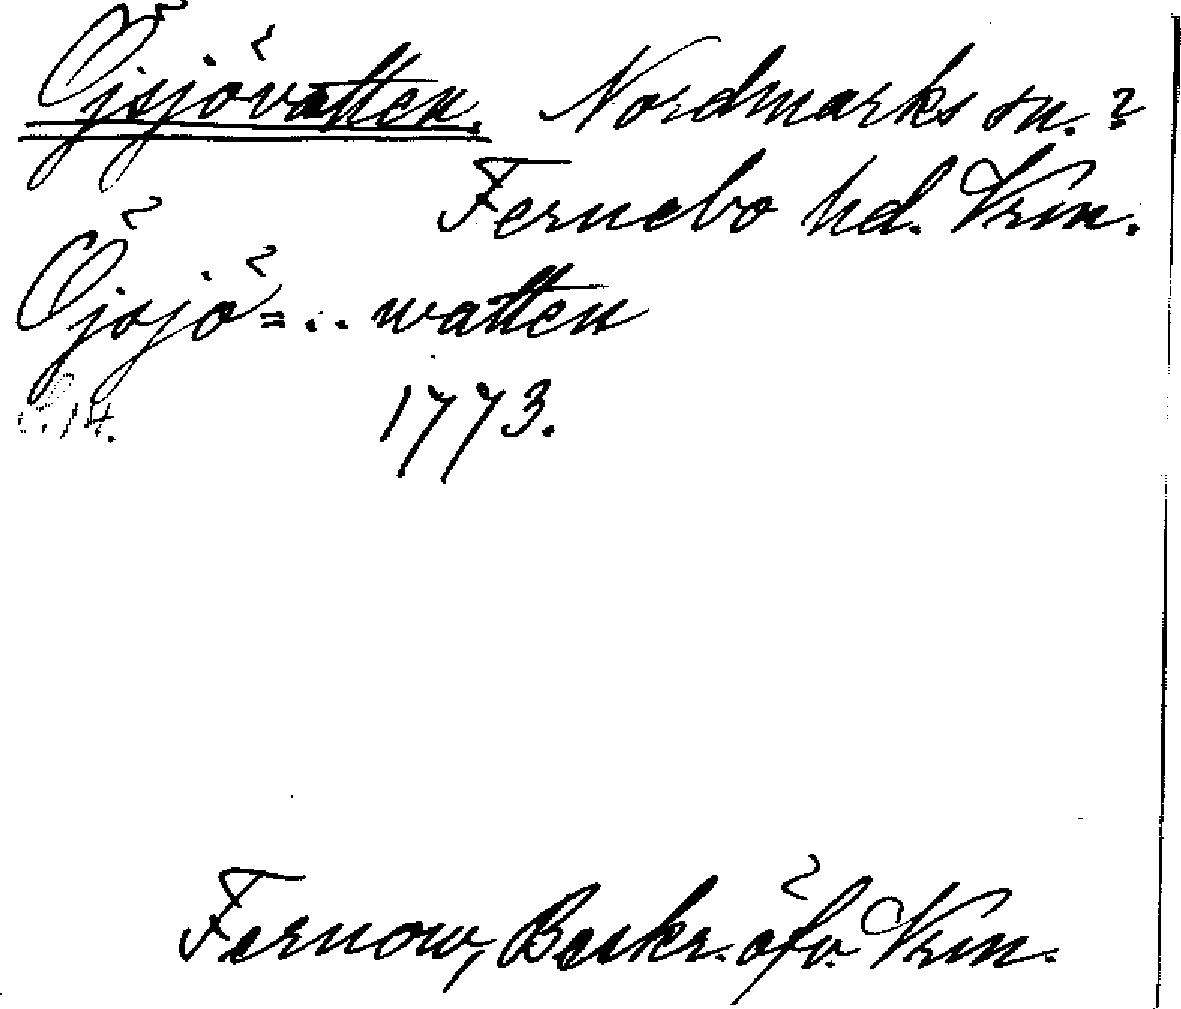 Öjsjövatten. Nordmarks sn. ?
Fernebo hd. Vrm.
Öjsjö=.. watten
1773.
Fernow, Beskr. öfv. Vrm.